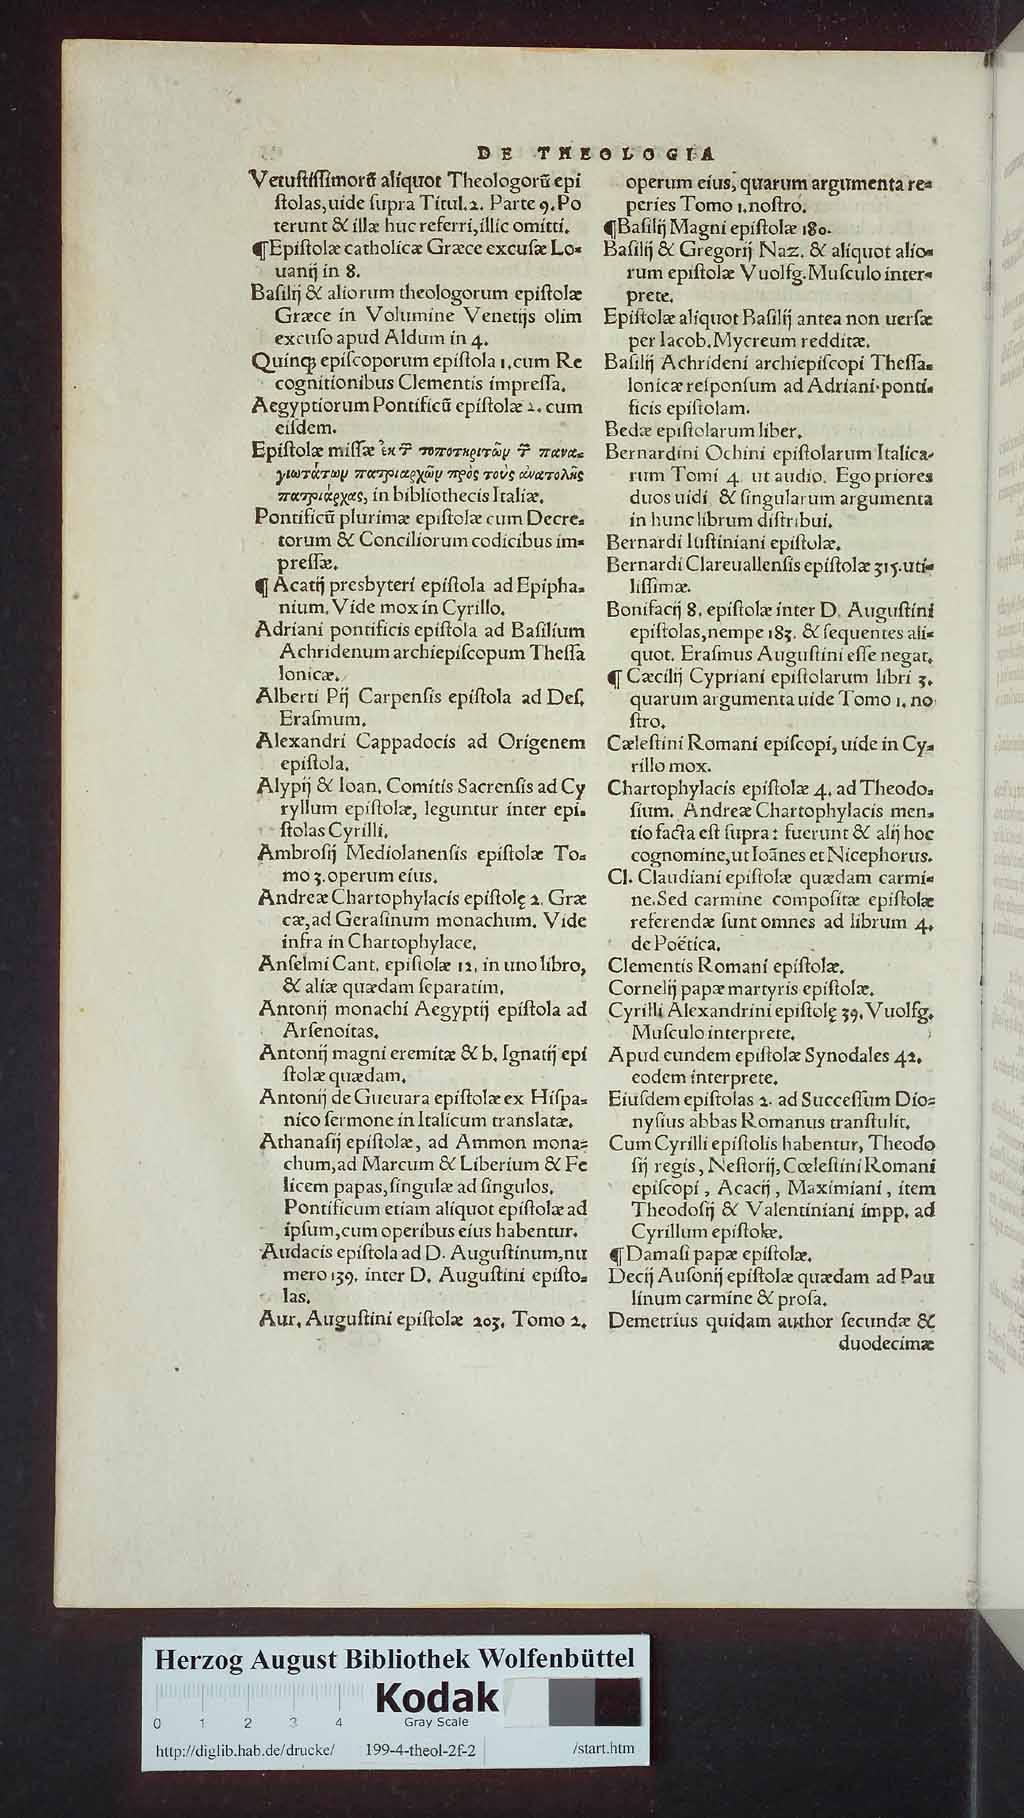 DE THEOLOGIA
Vetustissimorū aliquot Theologorū epi
stolas, uide supra Titul. 2. Parte 9. Po
terunt & illæ huc referri, illic omitti.
¶Epistolæ catholicæ Græce excusæ Lo-
uanij in 8.
Basilij & aliorum theologorum epistolæ
Græce in Volumine Venetijs olim
excuso apud Aldum in 4.
Quinq; episcoporum epistola 1. cum Re
cognitionibus Clementis impressa.
Aegyptiorum Pontificū epistolæ 2. cum
eisdem.
Epistolæ missæ ἐκ τ̄ τοποτηριτῶν τ̄ πανα-
γιωτάτων πατριαρχῶν πρὸς τοὺς ἀνατολῆς
πατριάρχας, in bibliothecis Italiæ.
Pontificū plurimæ epistolæ cum Decre-
torum & Conciliorum codicibus im-
pressæ.
¶ Acatij presbyteri epistola ad Epipha-
nium. Vide mox in Cyrillo.
Adriani pontificis epistola ad Basilium
Achridenum archiepiscopum Thessa
lonicæ.
Alberti Pij Carpensis epistola ad Des.
Erasmum.
Alexandri Cappadocis ad Origenem
epistola.
Alypij & Ioan. Comitis Sacrensis ad Cy
ryllum epistolæ, leguntur inter epi-
stolas Cyrilli.
Ambrosij Mediolanensis epistolæ To-
mo 3. operum eius.
Andreæ Chartophylacis epistolę 2. Græ
cæ, ad Gerasinum monachum. Vide
infra in Chartophylace.
Anselmi Cant. epistolæ 12. in uno libro,
& aliæ quædam separatim.
Antonij monachi Aegyptij epistola ad
Arsenoitas.
Antonij magni eremitæ & b. Ignatij epi
stolæ quædam.
Antonij de Gueuara epistolæ ex Hispa-
nico sermone in Italicum translatæ.
Athanasij epistolæ, ad Ammon mona-
chum, ad Marcum & Liberium & Fe
licem papas, singulæ ad singulos.
Pontificum etiam aliquot epistolæ ad
ipsum, cum operibus eius habentur.
Audacis epistola ad D. Augustinum, nu
mero 139. inter D. Augustini episto-
las.
Aur. Augustini epistolæ 203. Tomo 2.
operum eius, quarum argumenta re-
peries Tomo 1. nostro.
¶Basilij Magni epistolæ 180.
Basilij & Gregorij Naz. & aliquot alio-
rum epistolæ Vuolfg. Musculo inter-
prete.
Epistolæ aliquot Basilij antea non uersæ
per Iacob. Mycreum redditæ.
Basilij Achrideni archiepiscopi Thessa-
lonicæ responsum ad Adriani ponti-
ficis epistolam.
Bedæ epistolarum liber.
Bernardini Ochini epistolarum Italica-
rum Tomi 4. ut audio. Ego priores
duos uidi, & singularum argumenta
in hunc librum distribui.
Bernardi Iustiniani epistolæ.
Bernardi Clareuallensis epistolæ 315. uti-
lissimæ.
Bonifacij 8. epistolæ inter D. Augustini
epistolas, nempe 183. & sequentes ali-
quot. Erasmus Augustini esse negat.
¶ Cæcilij Cypriani epistolarum libri 3.
quarum argumenta uide Tomo 1. no
stro.
Cælestini Romani episcopi, uide in Cy-
rillo mox.
Chartophylacis epistolæ 4. ad Theodo-
sium. Andreæ Chartophylacis men-
tio facta est supra: fuerunt & alij hoc
cognomine, ut Ioānes et Nicephorus.
Cl. Claudiani epistolæ quædam carmi-
ne. Sed carmine compositæ epistolæ
referendæ sunt omnes ad librum 4.
de Poëtica.
Clementis Romani epistolæ.
Cornelij papæ martyris epistolæ.
Cyrilli Alexandrini epistolę 39. Vuolfg.
Musculo interprete.
Apud eundem epistolæ Synodales 42.
eodem interprete.
Eiusdem epistolas 2. ad Successum Dio-
nysius abbas Romanus transtulit.
Cum Cyrilli epistolis habentur, Theodo
sij regis, Nestorij, Cœlestini Romani
episcopi, Acacij, Maximiani, item
Theodosij & Valentiniani impp. ad
Cyrillum epistolæ.
¶Damasi papæ epistolæ.
Decij Ausonij epistolæ quædam ad Pau
linum carmine & prosa.
Demetrius quidam author secundæ &
duodecimæ
Herzog August Bibliothek Wolfenbüttel
Kodak
Gray Scale
0 1 2 3 4
http://diglib.hab.de/drucke/ 199-4-theol-2f-2 /start.htm